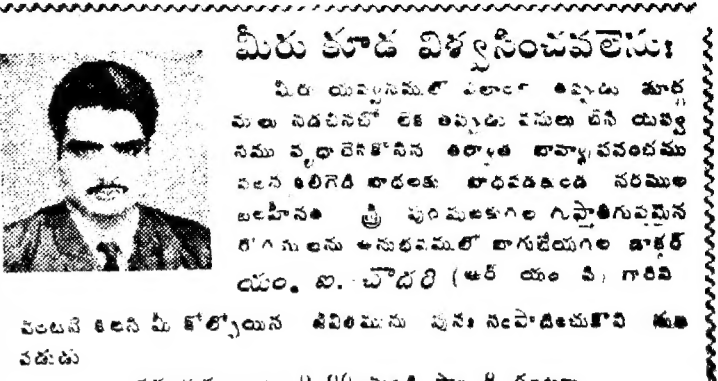 మీరు కూడ విశ్వసించవలెను:
మీరు యవ్వనములో తప్పుడు మార్గ
ములు నడచినటో లేక తప్పుడు పనులు చేసి యవ్వ
నము వృధా చేసికొనిన తర్వాత బాహ్య ప్రపంచము
వలన కలిగెడి బాధలకు బాధపడకుండ నరముల
బలహీనత స్త్రీ పురుషులకుగల గుప్తాతిగుప్తమైన
రోగములను అనుభవములో బాగుజేయగల డాక్టర్
యం. ఐ. చౌదరి (ఆర్ యం పి) గారిని
వెంటనే కలసి మీ కోల్పోయిన జీవితమును పునః సంపాదించుకొని సుఖ
పడుడు